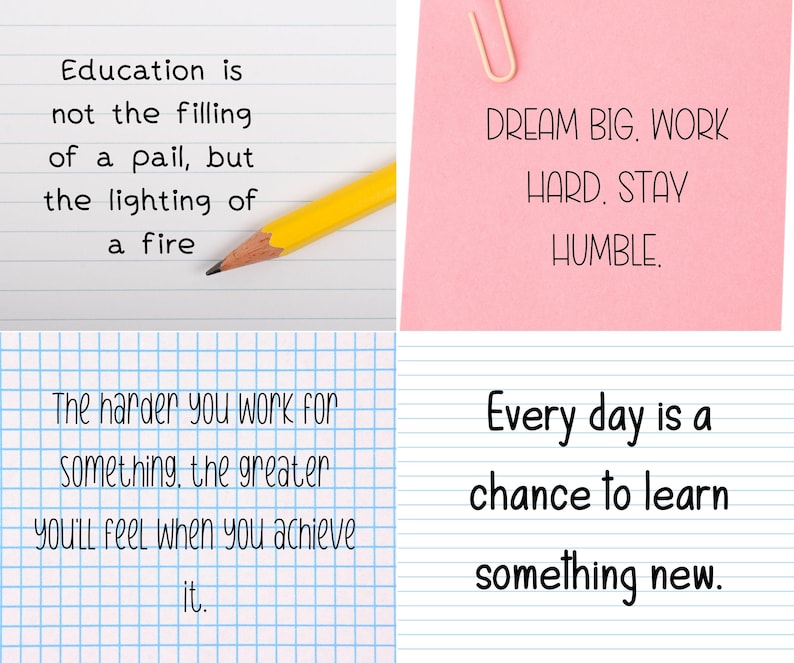 Education is
not the filling
of a pail, but
the lighting of
a fire
DREAM BIG. WORK
HARD. STAY
HUMBLE.
The harder you work for
something, the greater
you'll feel when you achieve
it.
Every day is a
chance to learn
something new.